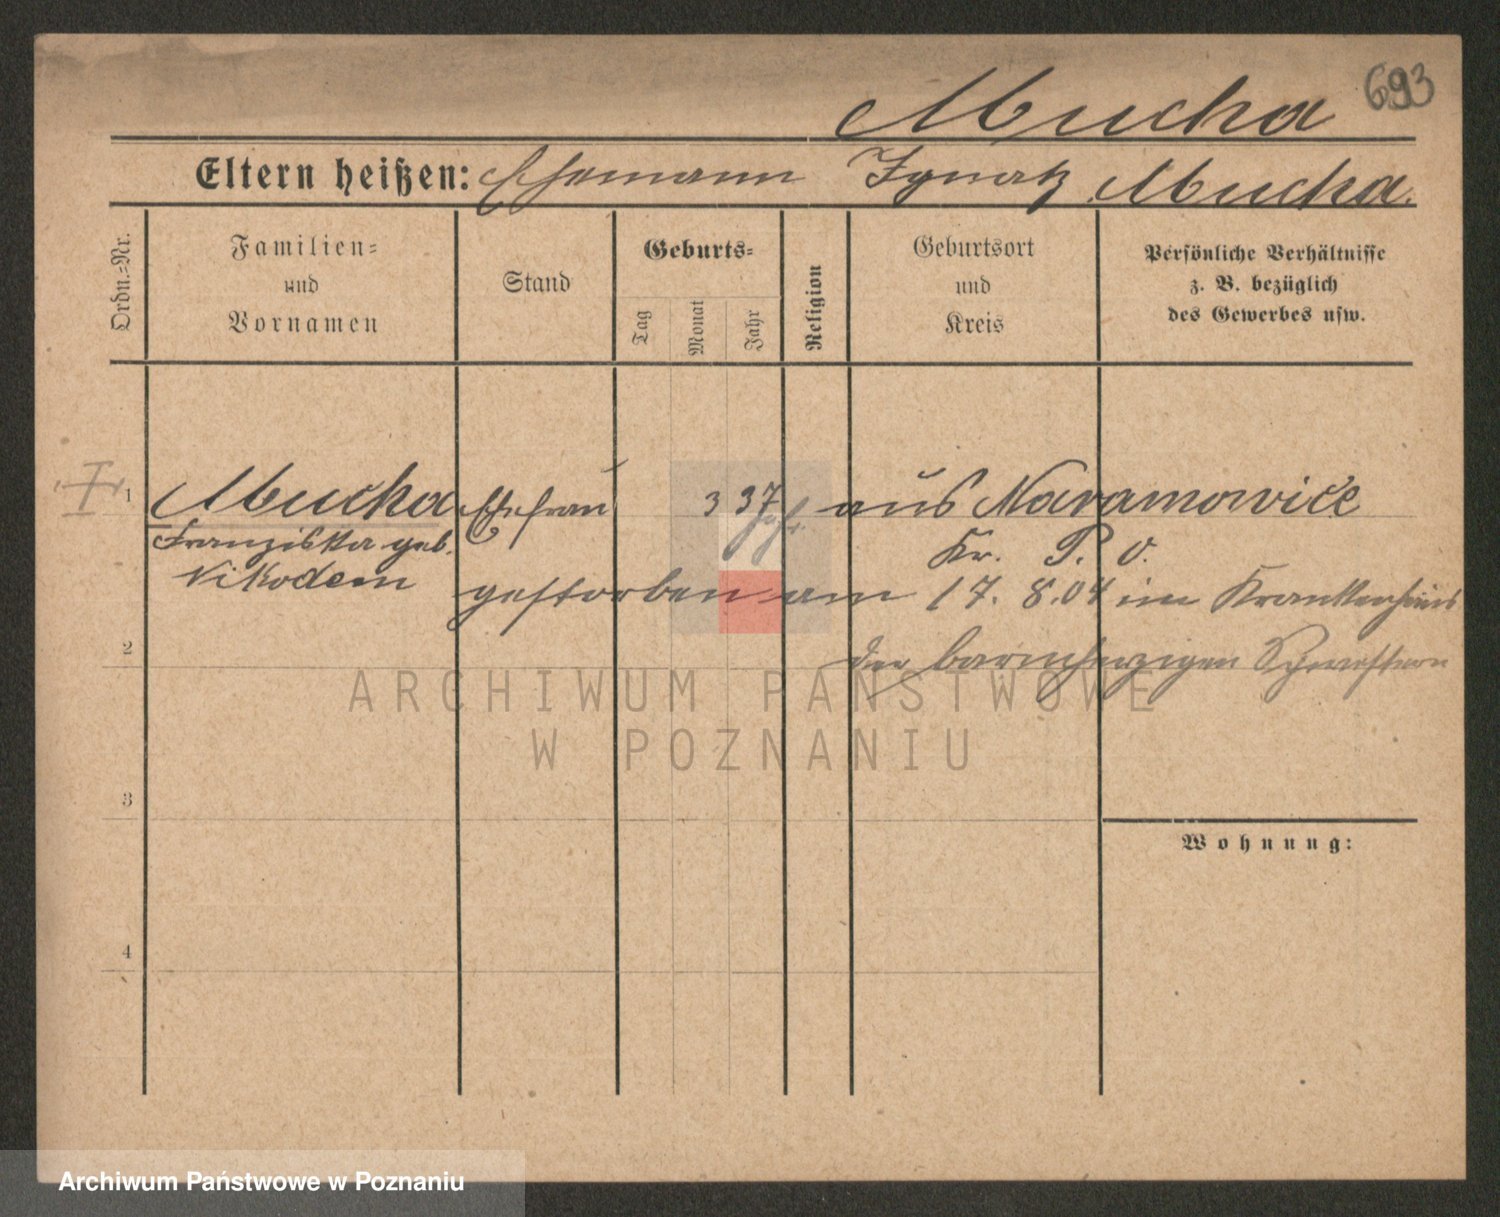 693
Mucha
Eltern heißen: Ehemann Ignatz Mucha.
Ordn.=Nr.
Familien=
und
Vornamen
Stand
Geburts=
Tag
Monat
Jahr
Religion
Geburtsort
und
Kreis
Persönliche Verhältnisse
z. B. bezüglich
des Gewerbes usw.
1 Mucha Ehefrau 37 aus Naramowice
Franziska geb. Kr. P. O.
Nikodem gestorben am 17. 8. 04 im Krankenhaus
2 der barmherzigen Schwestern
ARCHIWUM PAŃSTWOWE
W POZNANIU
3
Wohnung:
4
Archiwum Państwowe w Poznaniu